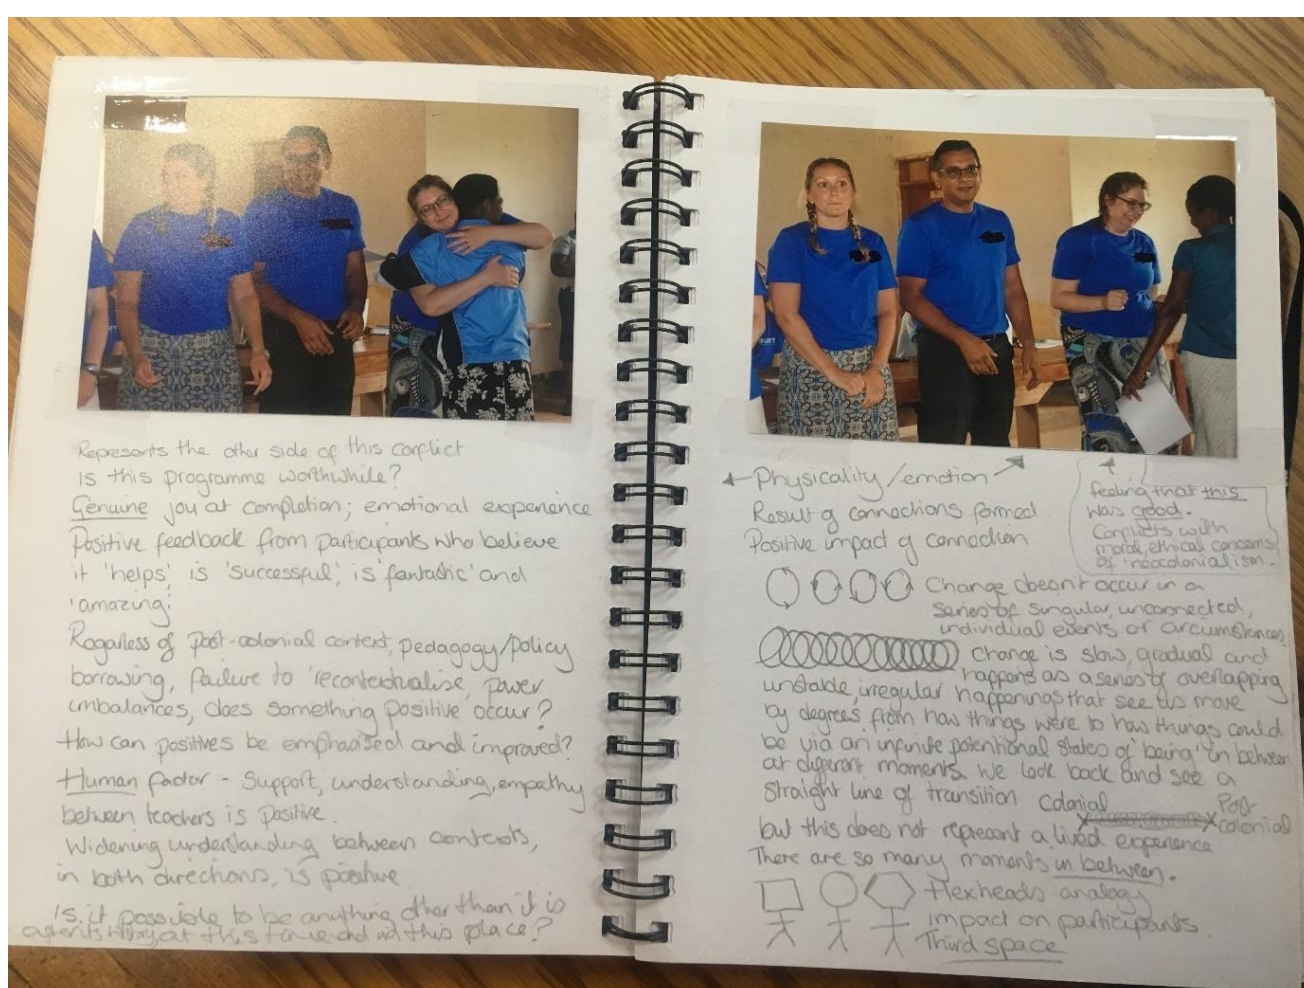 Represents the other side of this conflict
Is this programme worthwhile?
Genuine joy at completion; emotional experience
Positive feedback from participants who believe
it 'helps', is 'successful', is 'fantastic' and
'amazing'.
Regarless of post-colonial context, pedagogy/policy
borrowing, failure to 'recontextualise', power
imbalances, does something positive occur?
How can positives be emphasised and improved?
Human factor - Support, understanding, empathy
between teachers is positive.
Widening understanding between contexts,
in both directions, is positive
Is it possible to be anything other than it is
at this time and in this place?
Physicality/emotion
Result of connections formed
Positive impact of connection
feeling that this
was good.
Conflicts with
moral, ethical concerns
of 'neocolonialism.
Change doesn't occur in a
series of singular, unconnected,
individual events or circumstances
Change is slow, gradual and
happens as a series of overlapping
unstable, irregular happenings that see us move
by degrees from how things were to how things could
be via an infinite potentional states of 'being' in between
at different moments. We look back and see a
straight line of transition colonial Post
colonial
but this does not represent a lived experience
There are so many moments in between.
Flexheads analogy
impact on participants.
Third space